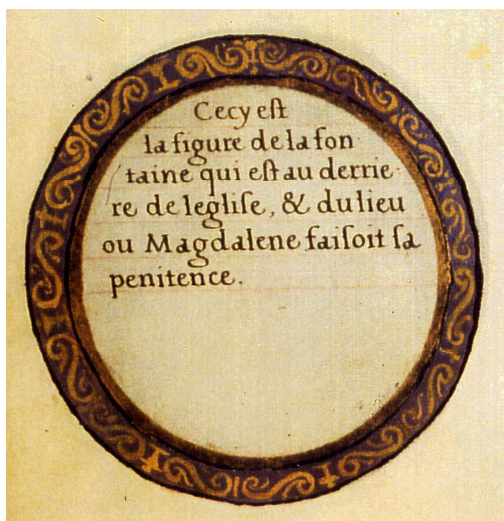 Cecy eſt
la figure de la fon
taine qui eſt au derrie
re de legliſe, & du lieu
ou Magdalene faiſoit ſa
penitence.